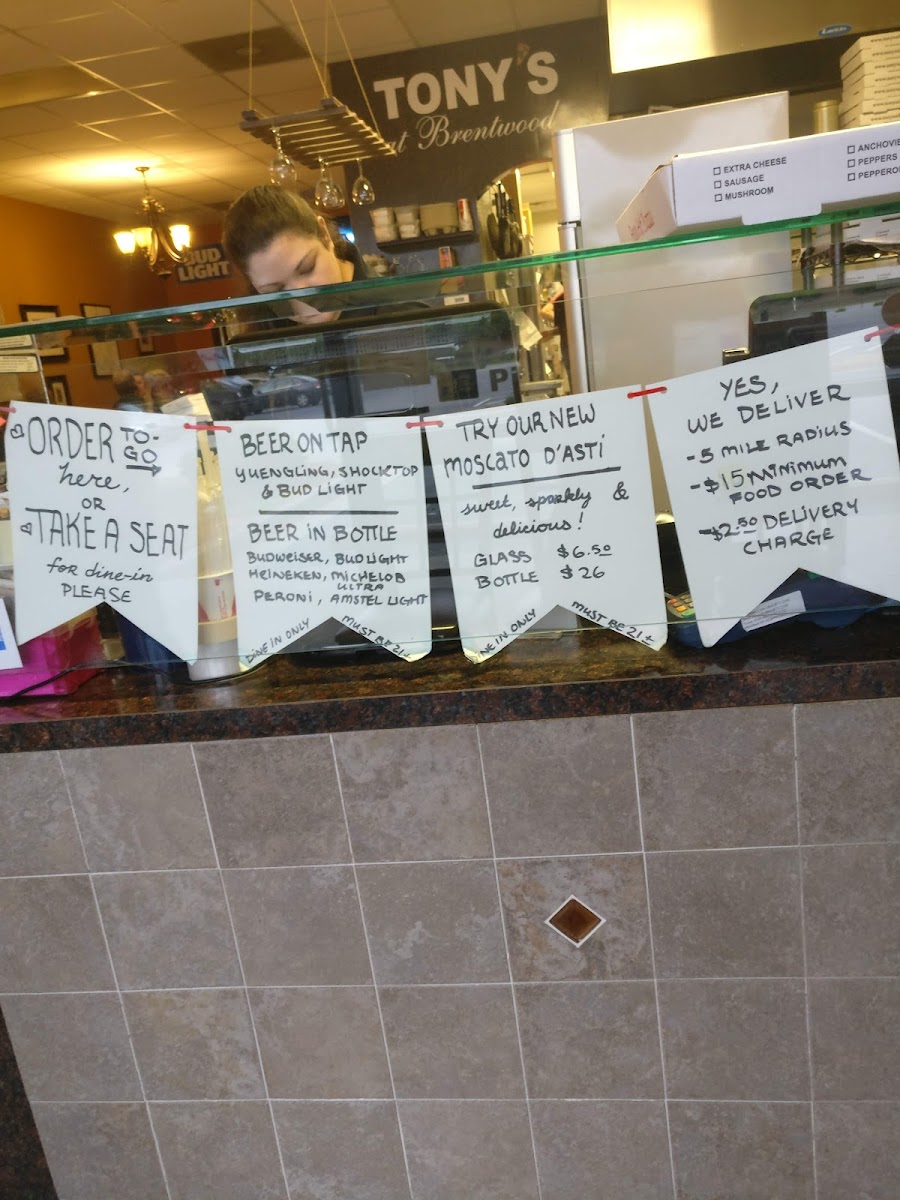 TONY'S
at Brentwood
BUD
LIGHT
EXTRA CHEESE
SAUSAGE
MUSHROOM
PEPPERS
ORDER TO-GO
here,
OR
TAKE A SEAT
for dine-in
PLEASE
BEER ON TAP
YUENGLING, SHOCKTOP
& BUD LIGHT
BEER IN BOTTLE
BUDWEISER, BUD LIGHT
HEINEKEN, MICHELOB
ULTRA
PERONI, AMSTEL LIGHT
DINE IN ONLY
MUST BE 21+
TRY OUR NEW
MOSCATO D'ASTI
sweet, sparkly &
delicious!
GLASS $6.50
BOTTLE $26
NE IN ONLY
MUST BE 21+
YES,
WE DELIVER
-5 MILE RADIUS
-$15 MINIMUM
FOOD ORDER
-$2.50 DELIVERY
CHARGE